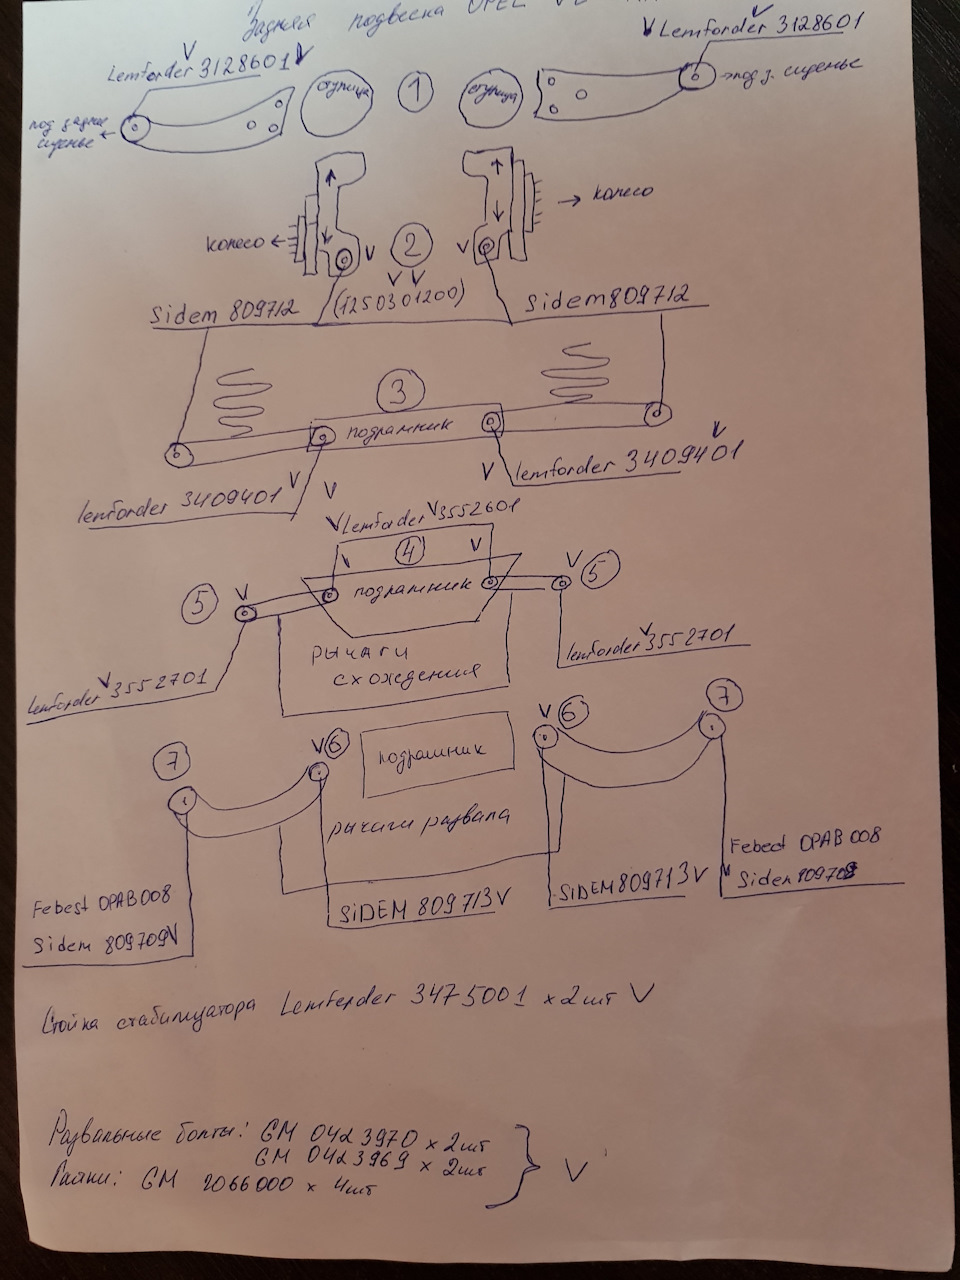 Задняя подвеска OPEL
Lemforder 3128601
Lemforder 3128601
ступица
1
ступица
под заднее
сиденье
под з. сиденье
колесо
колесо
2
Sidem 809712
(1250301200)
Sidem 809712
3
подрамник
lemforder 3409401
lemforder 3409401
Lemforder 3552601
4
5
подрамник
5
рычаги
схождения
lemforder 3552701
lemforder 3552701
7
6
подрамник
6
7
рычаги развала
Febest OPAB008
Sidem 809709
SiDEM 809713
SIDEM 809713
Febest OPAB 008
Sidem 809709
Стойка стабилизатора Lemferder 3475001 x 2шт
Развальные болты: GM 0423970 x 2шт
GM 0423969 x 2шт
Гайки: GM 2066000 x 4шт